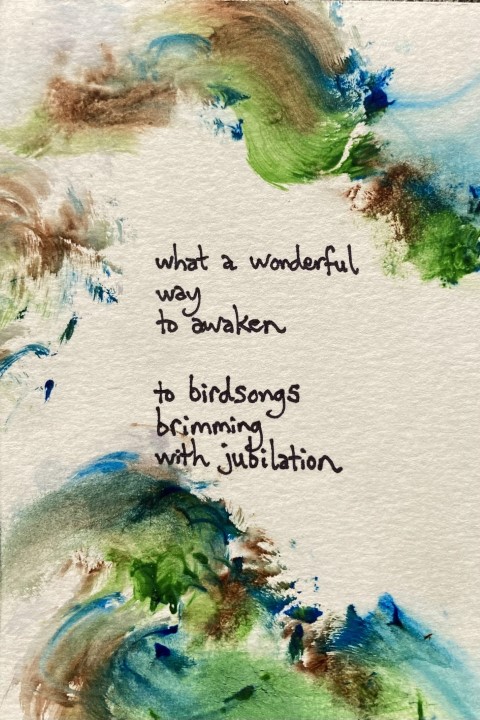 what a wonderful
way
to awaken
to birdsongs
brimming
with jubilation